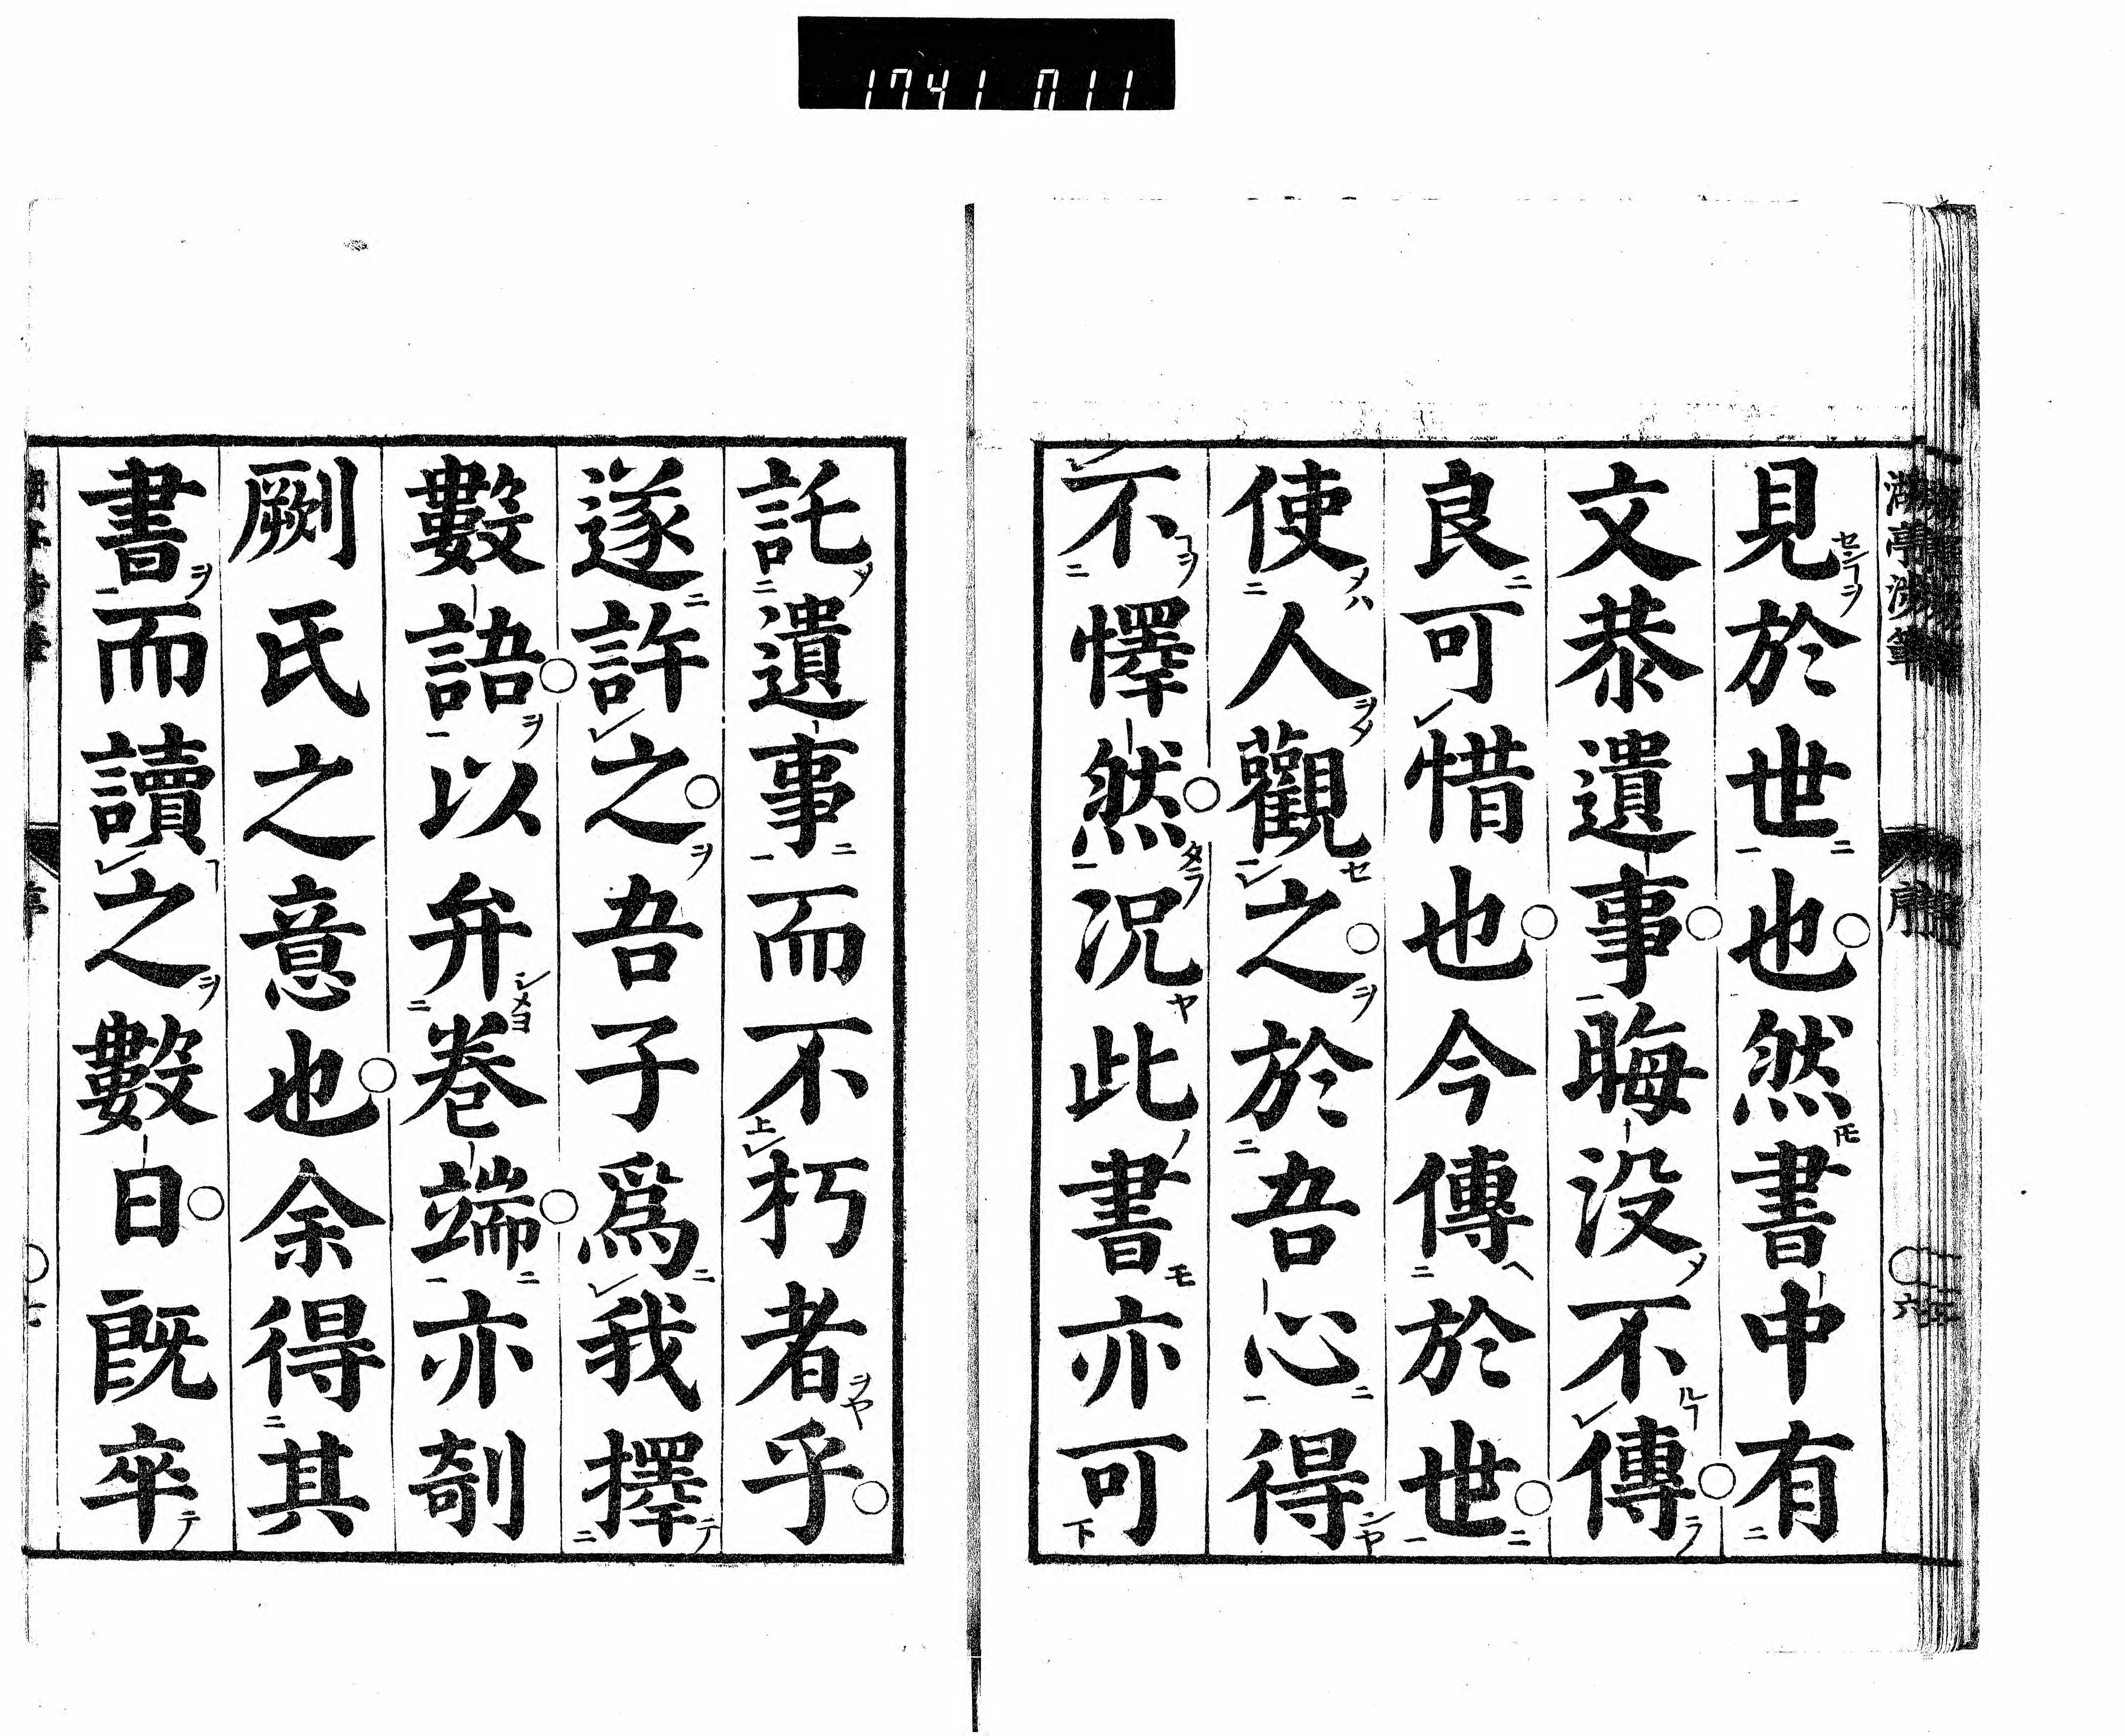 1741 011
見於世也然書中有
文恭遺事晦没不傳
良可惜也今傳於世
使人觀之於吾心得
不懌然況此書亦可
託遺事而不朽者乎
遂許之吾子爲我擇
數語以弁巻端亦剞
劂氏之意也余得其
書而讀之數日既卒